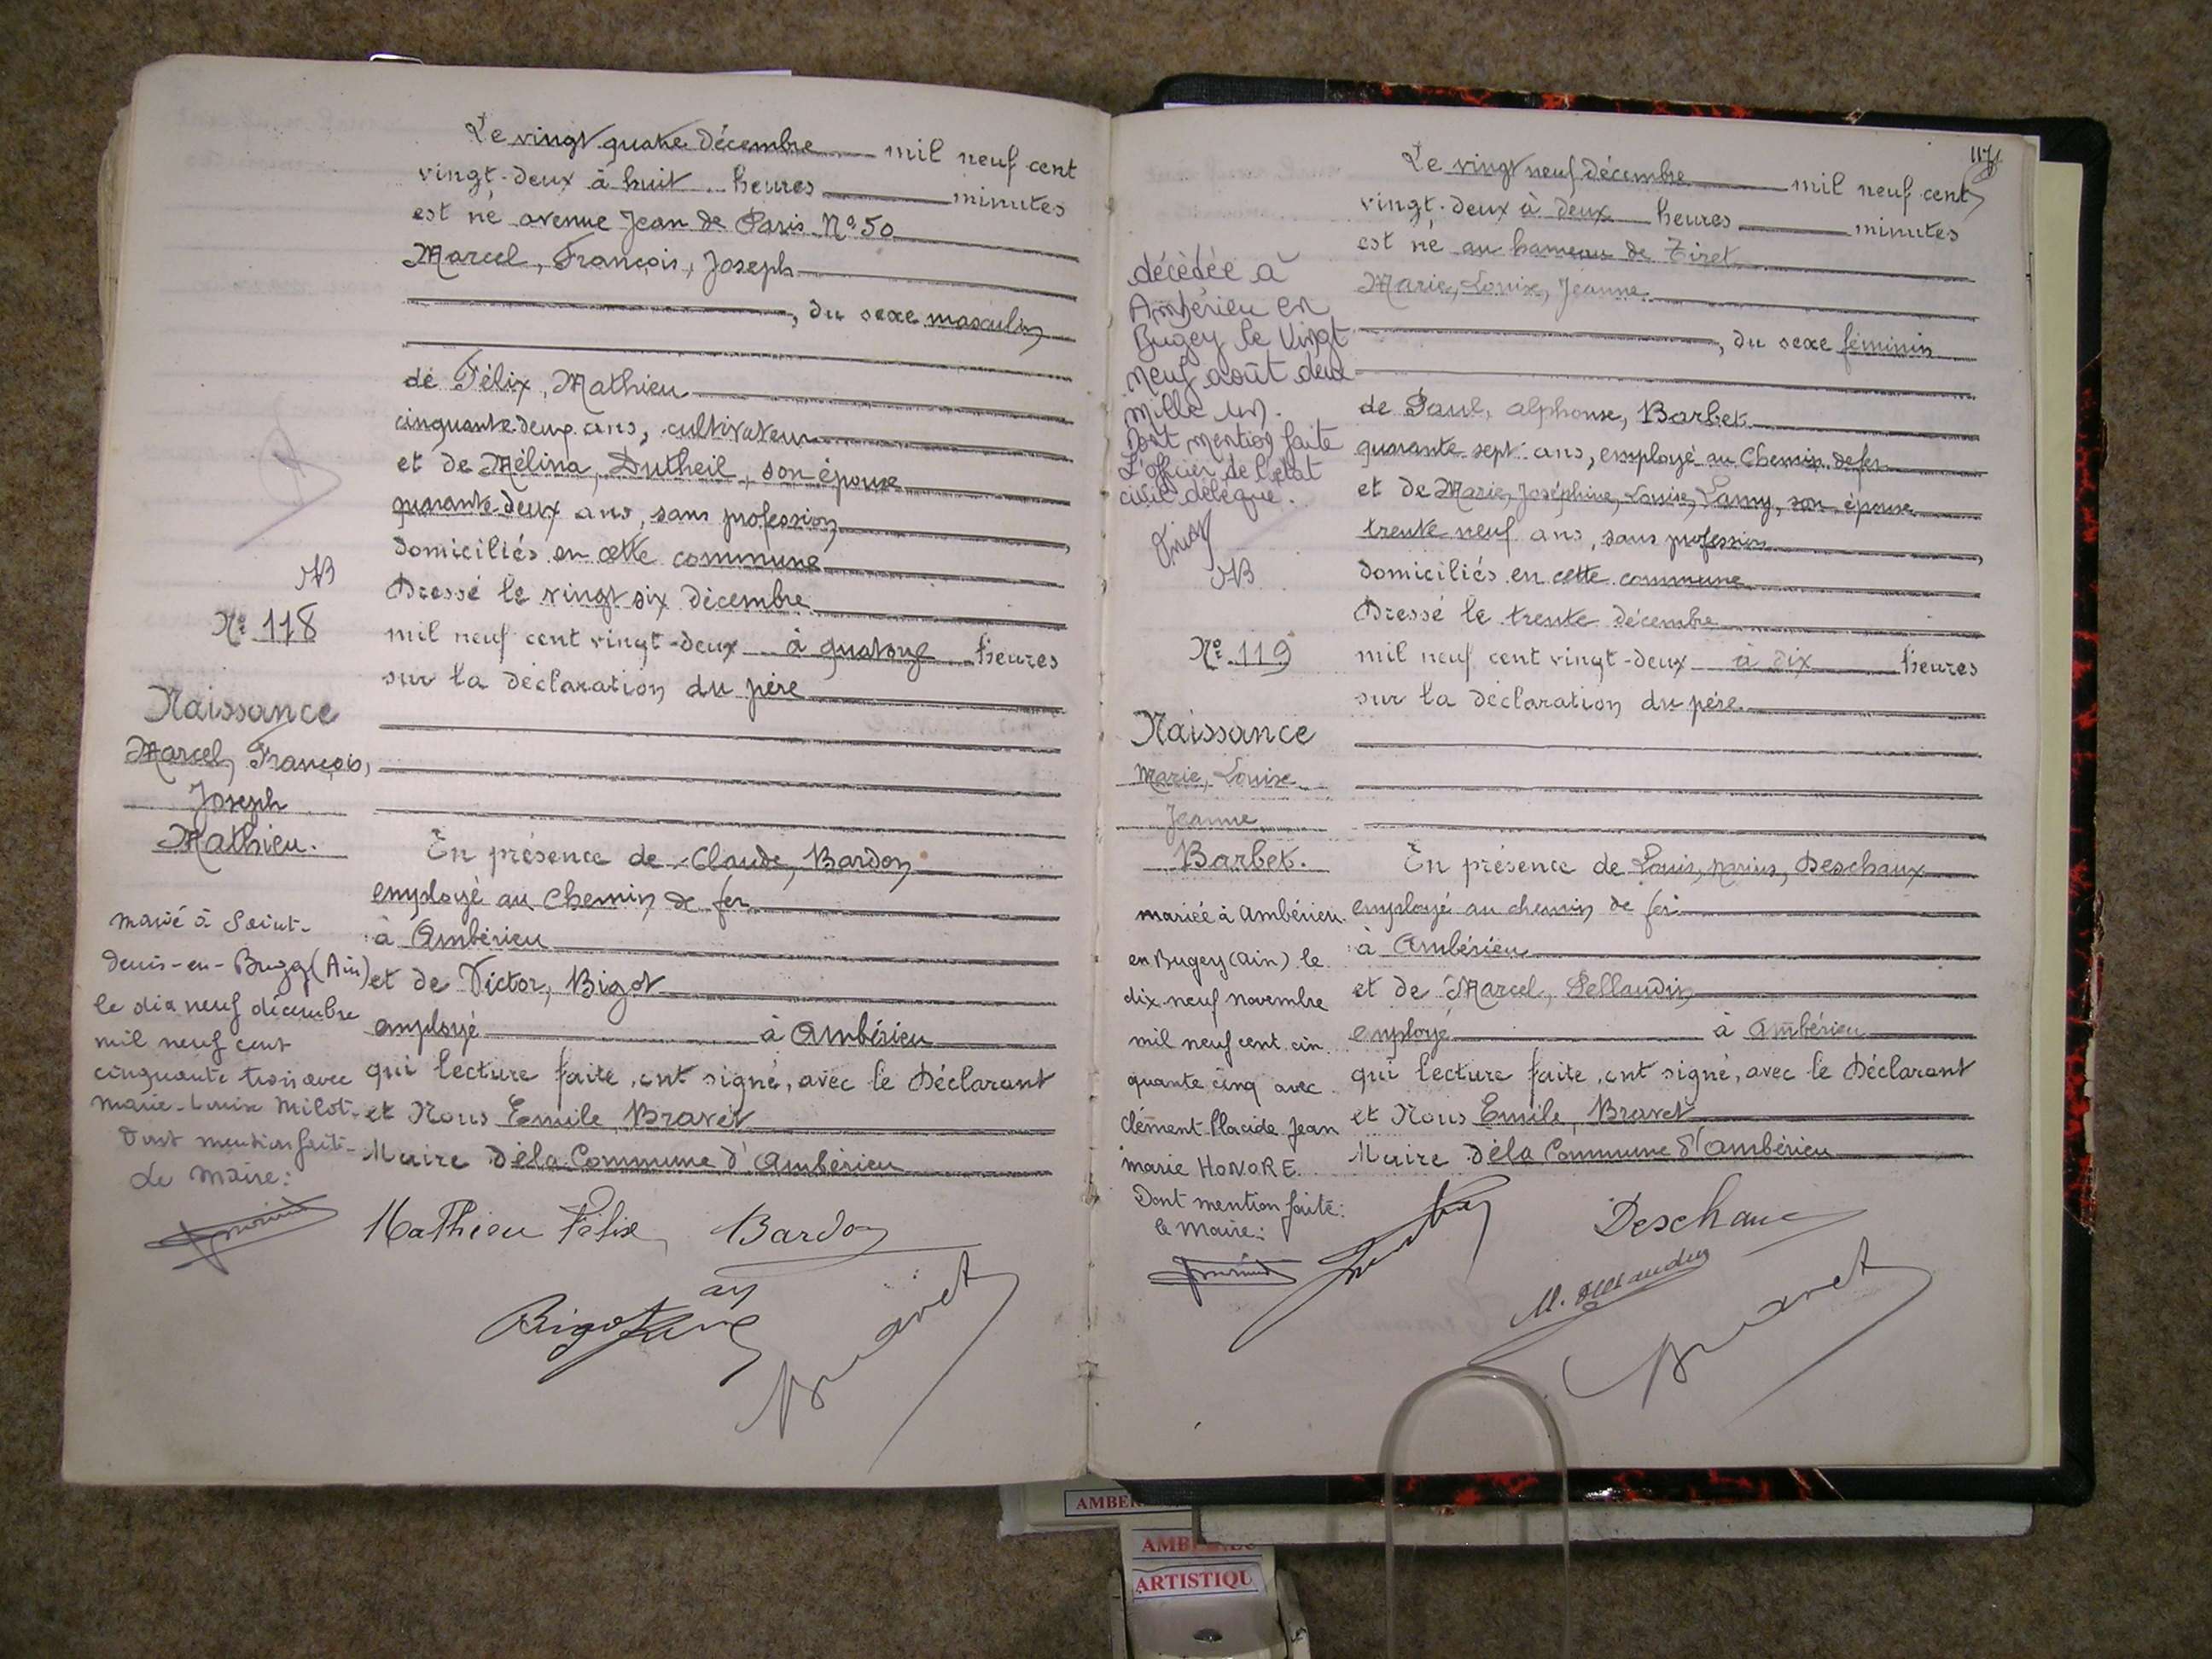 Le vingt quatre décembre mil neuf cent
vingt-deux à huit heures minutes
est né avenue Jean de Paris Nº 50
Marcel, François, Joseph
, du sexe masculin
de Félix, Mathieu
cinquante-deux ans, cultivateur
et de Mélina, Dutheil, son épouse
quarante-deux ans, sans profession,
domiciliés en cette commune
Dressé le vingt six décembre
mil neuf cent vingt-deux à quatorze heures
sur la déclaration du père
NB
Nº 118
Naissance
Marcel, François,
Joseph
Mathieu.
En présence de Claude, Bardon
employé au Chemin de fer
à Ambérieu
et de Victor, Bigot
employé à Ambérieu
qui lecture faite, ont signé, avec le Déclarant
et Nous Emile, Bravet
Maire de la Commune d'Ambérieu
marié à Saint-
Denis-en-Bugey (Ain)
le dix neuf décembre
mil neuf cent
cinquante trois avec
Marie-Louise Milot.
Dont mention faite
Le Maire:
Mathieu Félix Bardon
Bigot
Bravet
117
Le vingt neuf décembre mil neuf cent
vingt-deux à deux heures minutes
est né au hameau de Tiret
Marie, Louise, Jeanne
, du sexe féminin
de Paul, Alphonse, Barbet
quarante sept ans, employé au Chemin de fer
et de Marie, Joséphine, Louise, Lamy, son épouse
trente neuf ans, sans profession,
domiciliés en cette commune
Dressé le trente décembre
mil neuf cent vingt-deux à dix heures
sur la déclaration du père.
décédée à
Ambérieu en
Bugey le Vingt
neuf août deux
mille un.
Dont mention faite
L'officier de l'état
civil délégué.
NB
Nº 119
Naissance
Marie, Louise
Jeanne
Barbet.
En présence de Louis, Marius, Deschaux
employé au chemin de fer
à Ambérieu
et de Marcel, Pellaudin
employé à Ambérieu
qui lecture faite, ont signé, avec le Déclarant
et Nous Emile, Bravet
Maire de la Commune d'Ambérieu
mariée à Ambérieu
en Bugey (Ain) le
dix neuf novembre
mil neuf cent cin
quante cinq avec
Clément Placide Jean
Marie HONORE.
Dont mention faite:
le Maire:
Deschaux
Bravet
AMBE
ARTISTIQU